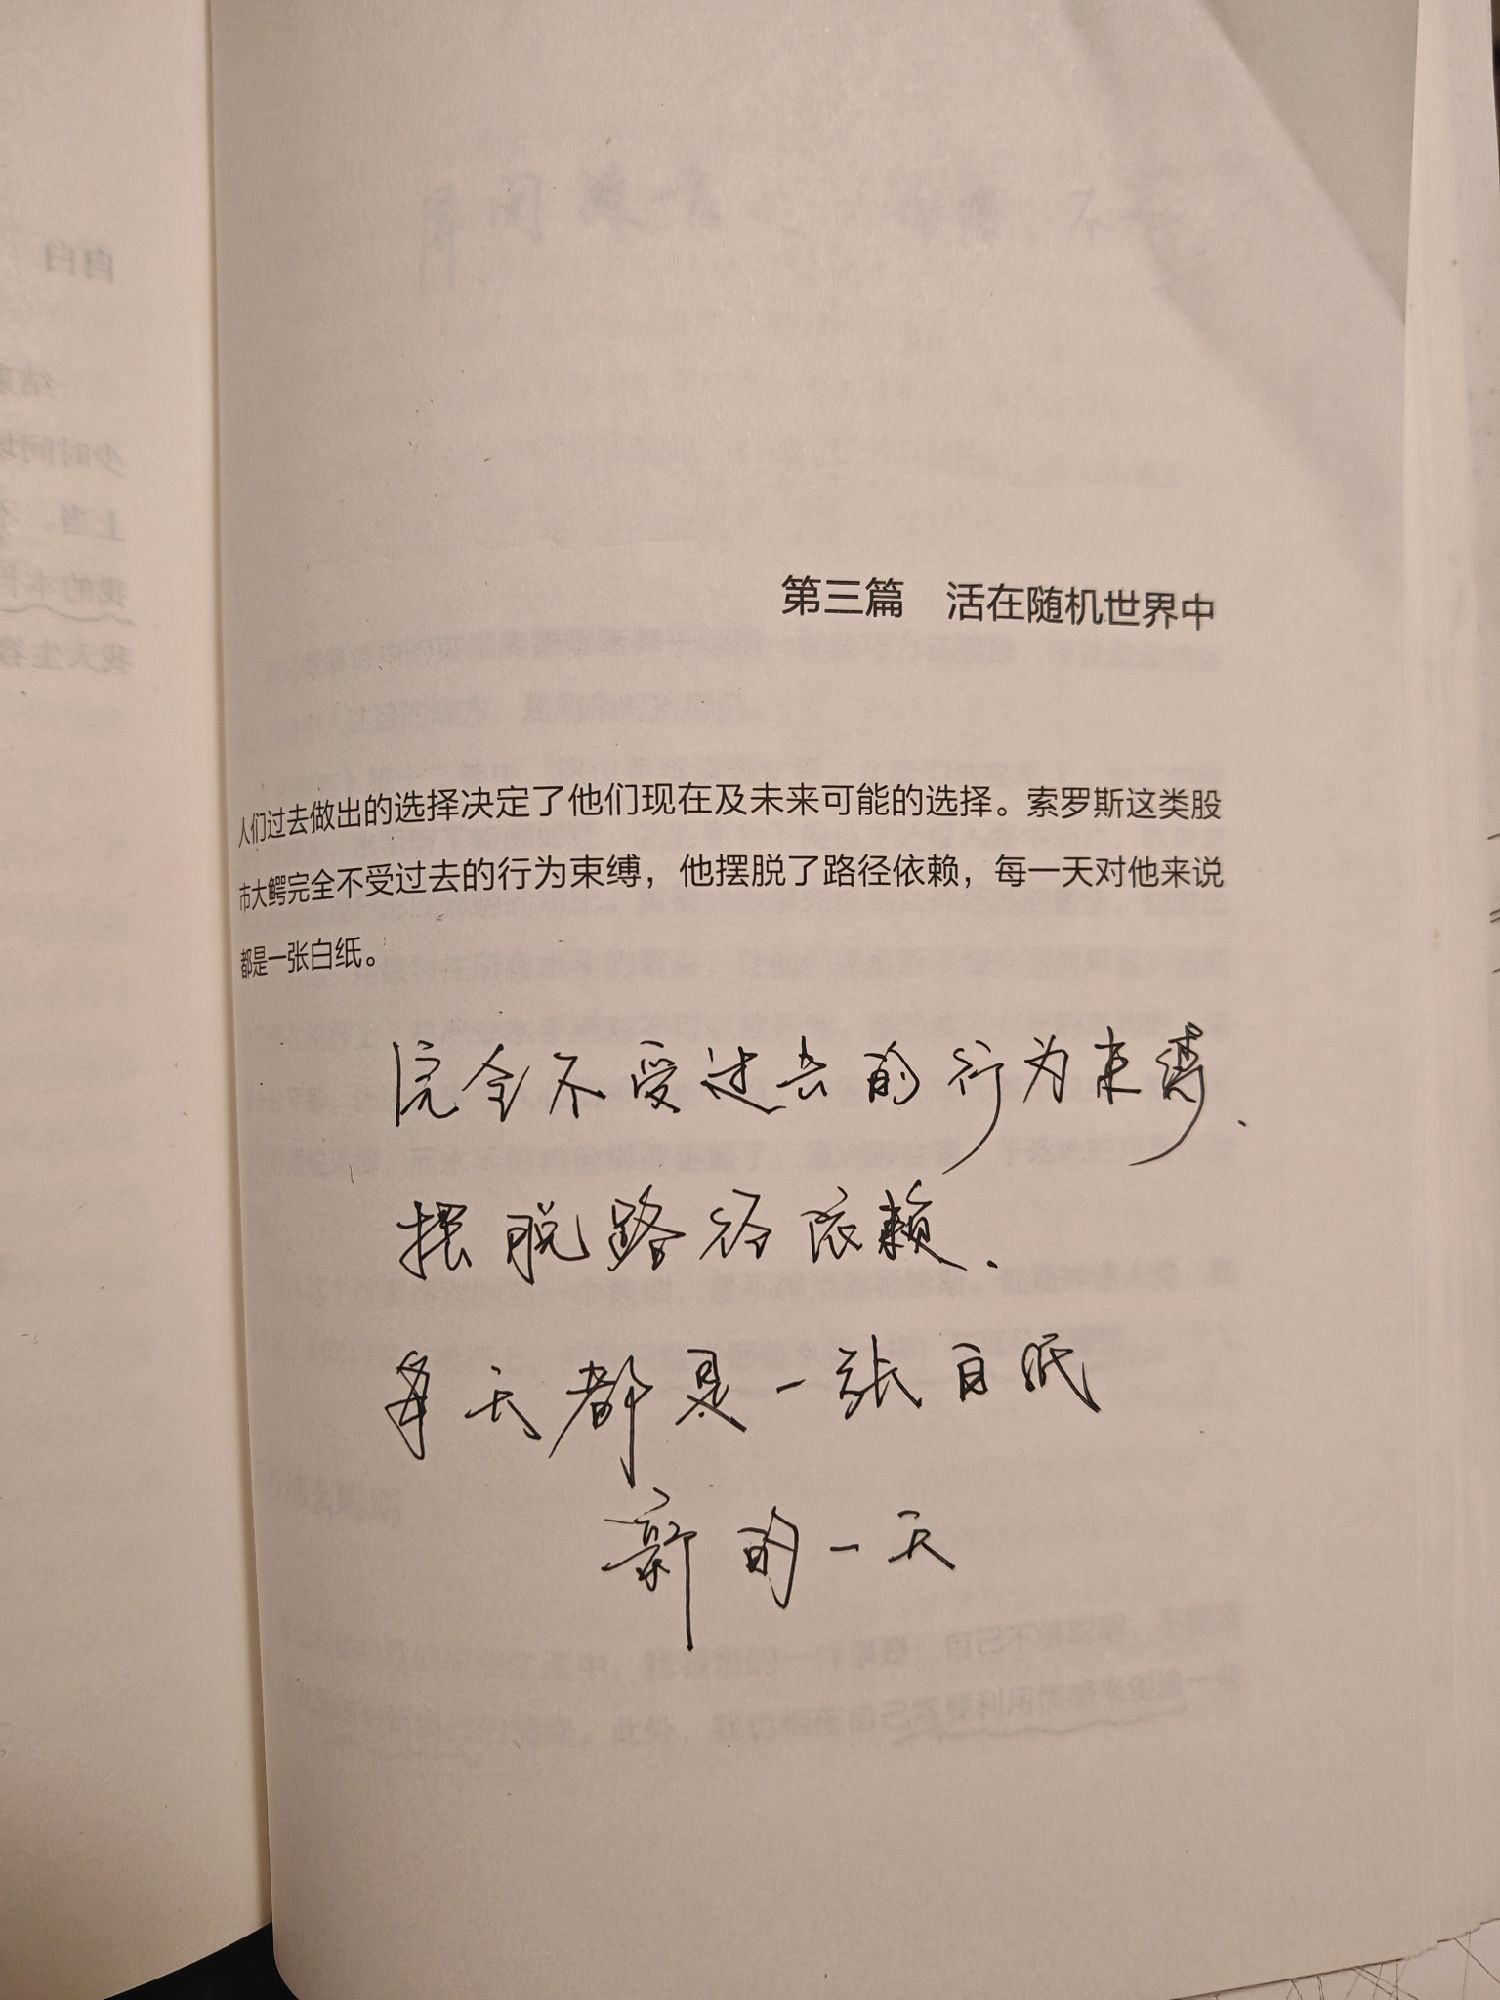 自白
第三篇 活在随机世界中
人们过去做出的选择决定了他们现在及未来可能的选择。索罗斯这类股
市大鳄完全不受过去的行为束缚，他摆脱了路径依赖，每一天对他来说
都是一张白纸。
完全不受过去的行为束缚.
摆脱路径依赖.
每天都是一张白纸
新的一天